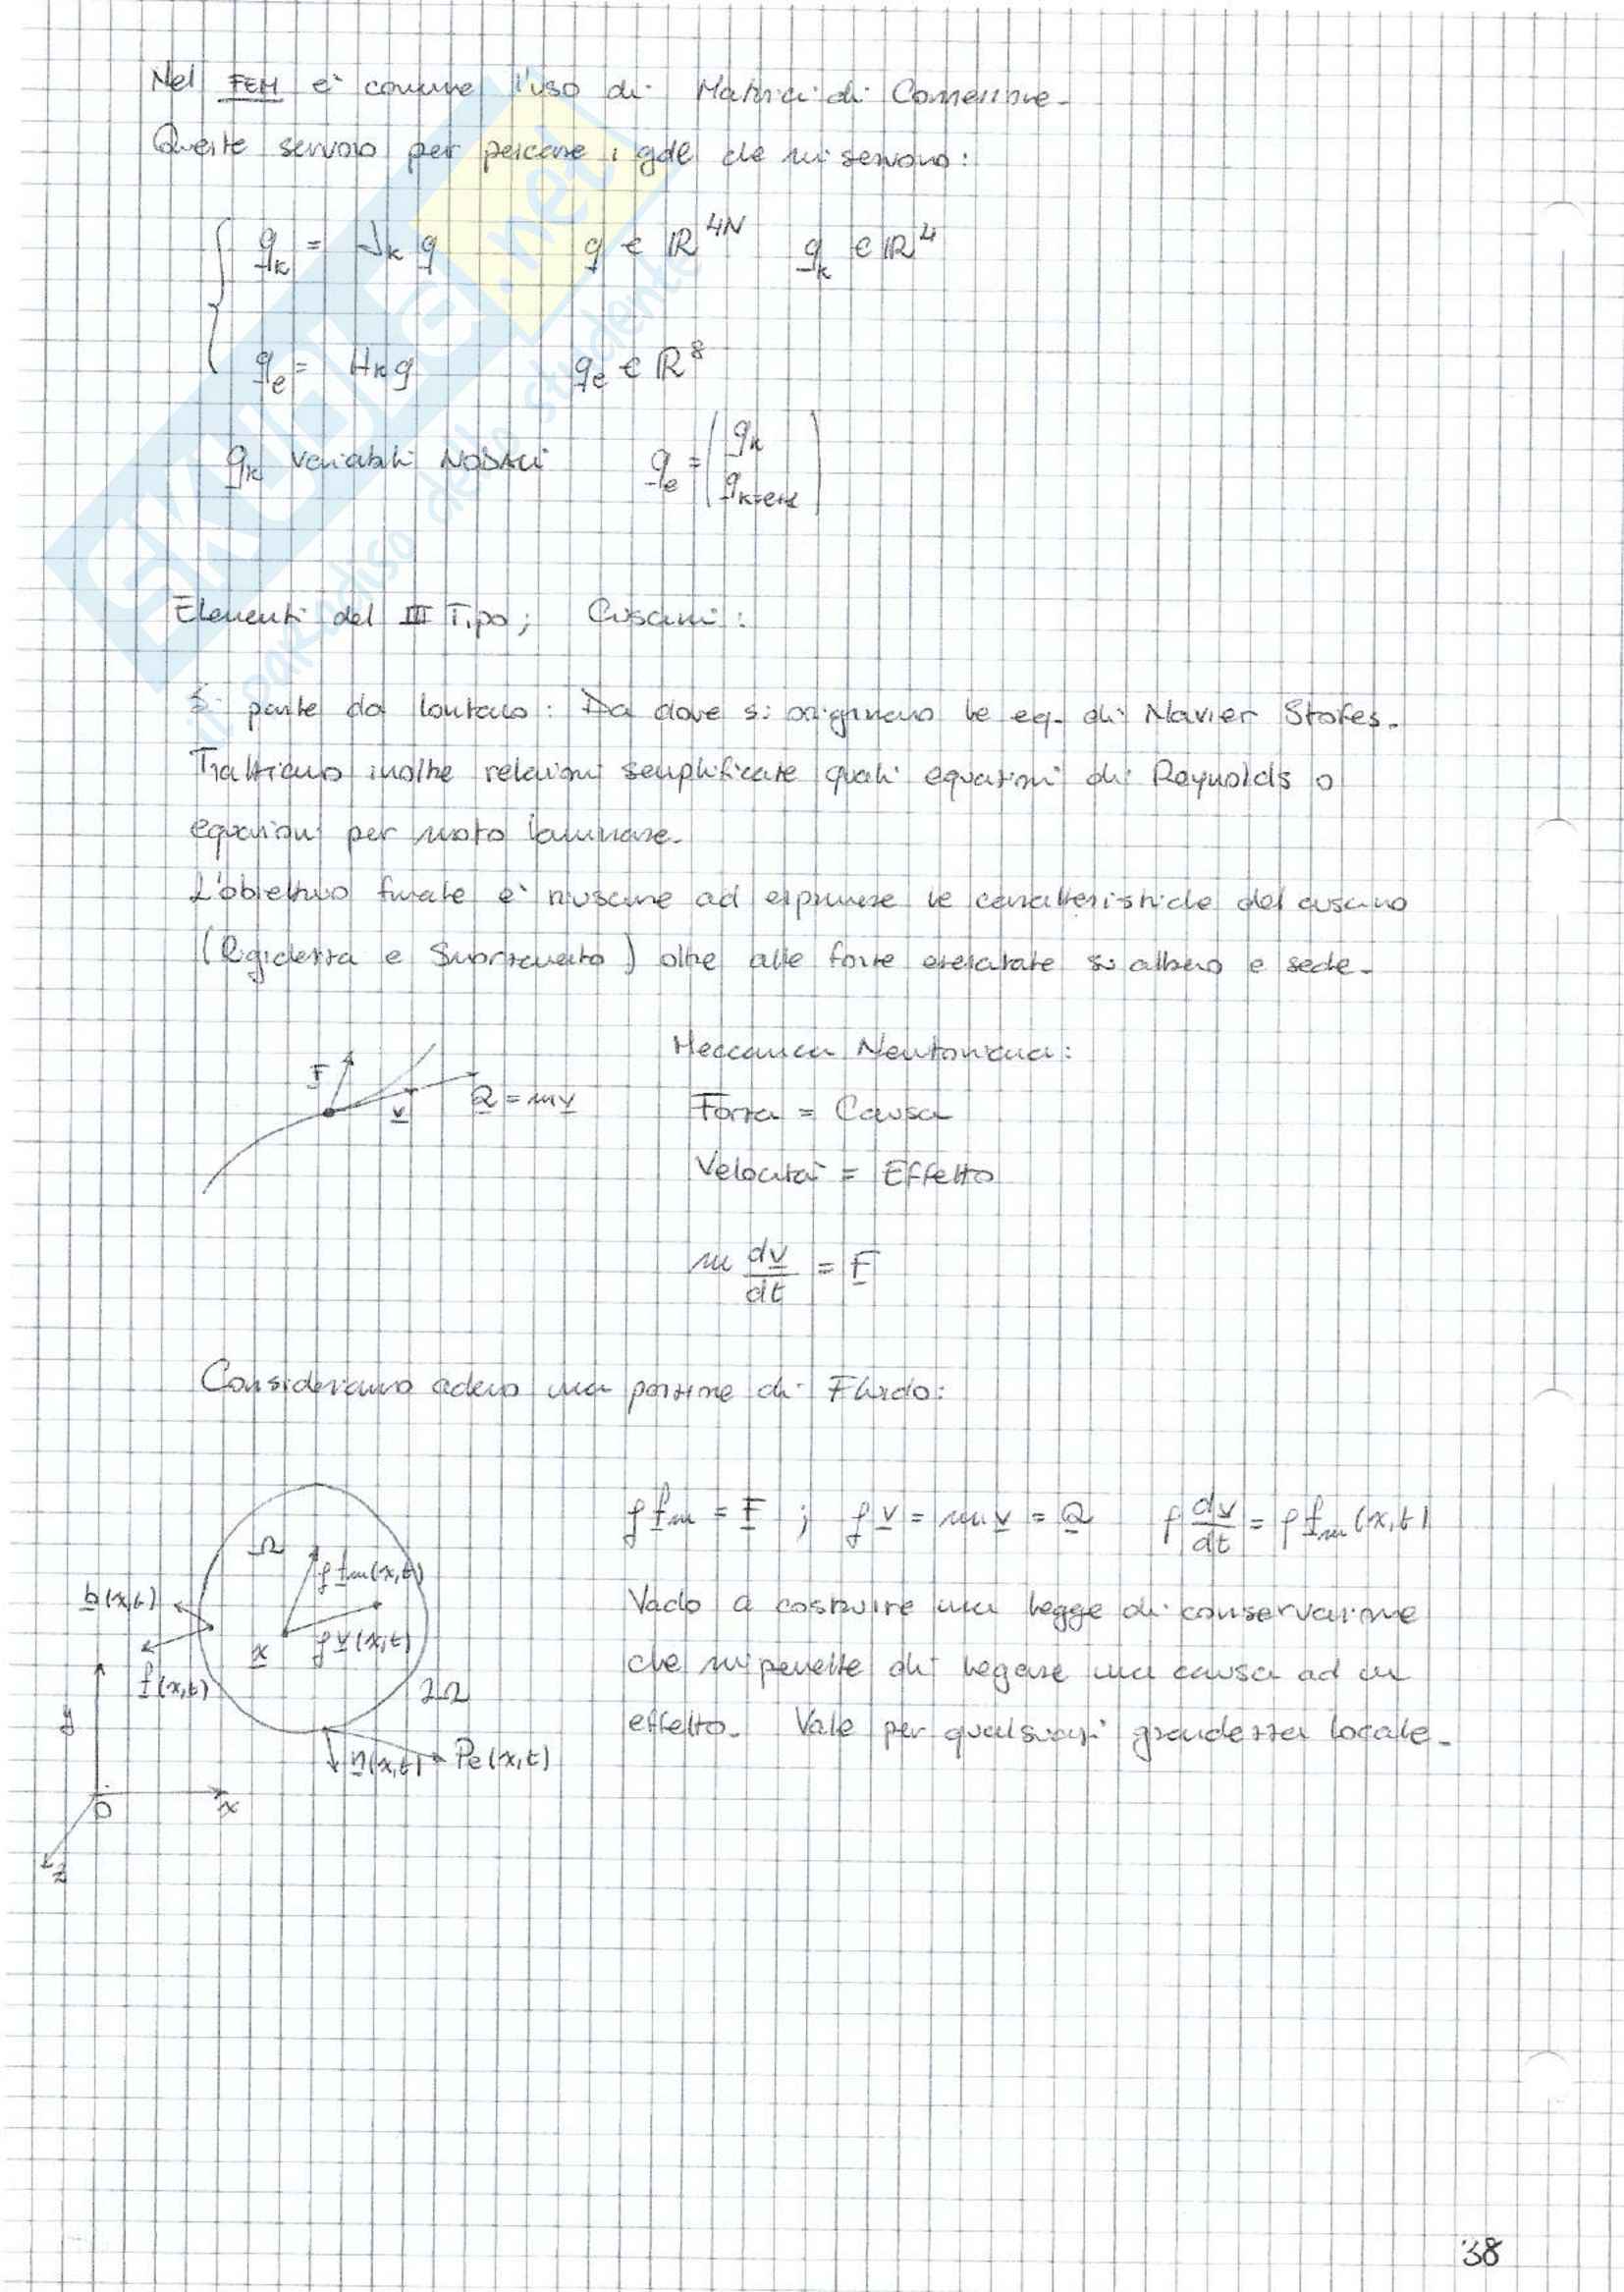 Nel FEM è comune l'uso di Matrici di Connessione.
Queste servono per pescare i gdl che mi servono:
q_k = J_k q   q ∈ ℝ^4N   q_k ∈ ℝ^4
q_e = H_k q   q_e ∈ ℝ^8
q_k variabili NODALI   q_e = (q_k
Elementi del III Tipo; Cuscini:
Si parte da lontano: Da dove si originano le eq. di Navier Stokes.
Trattiamo inoltre relazioni semplificate quali equazioni di Reynolds o
equazioni per moto laminare.
L'obiettivo finale è riuscire ad esprimere le caratteristiche del cuscino
(Rigidezza e Smorzamento) oltre alle forze esercitate su albero e sede.
F
v
Q = mv
Meccanica Newtoniana:
Forza = Causa
Velocità = Effetto
m dv/dt = F
Consideriamo adesso una porzione di Fluido:
ρ f_m = F ; ρ v = m v = Q   ρ dv/dt = ρ f_m (x,t)
Ω
ρ f_m(x,t)
b(x,t)
ρ v(x,t)
x
f(x,t)
∂Ω
n(x,t)   Pe(x,t)
y
O
x
z
Vado a costruire una legge di conservazione
che mi permette di legare una causa ad un
effetto. Vale per qualsiasi grandezza locale.
38
SKUOLA.net
il paradiso dello studente